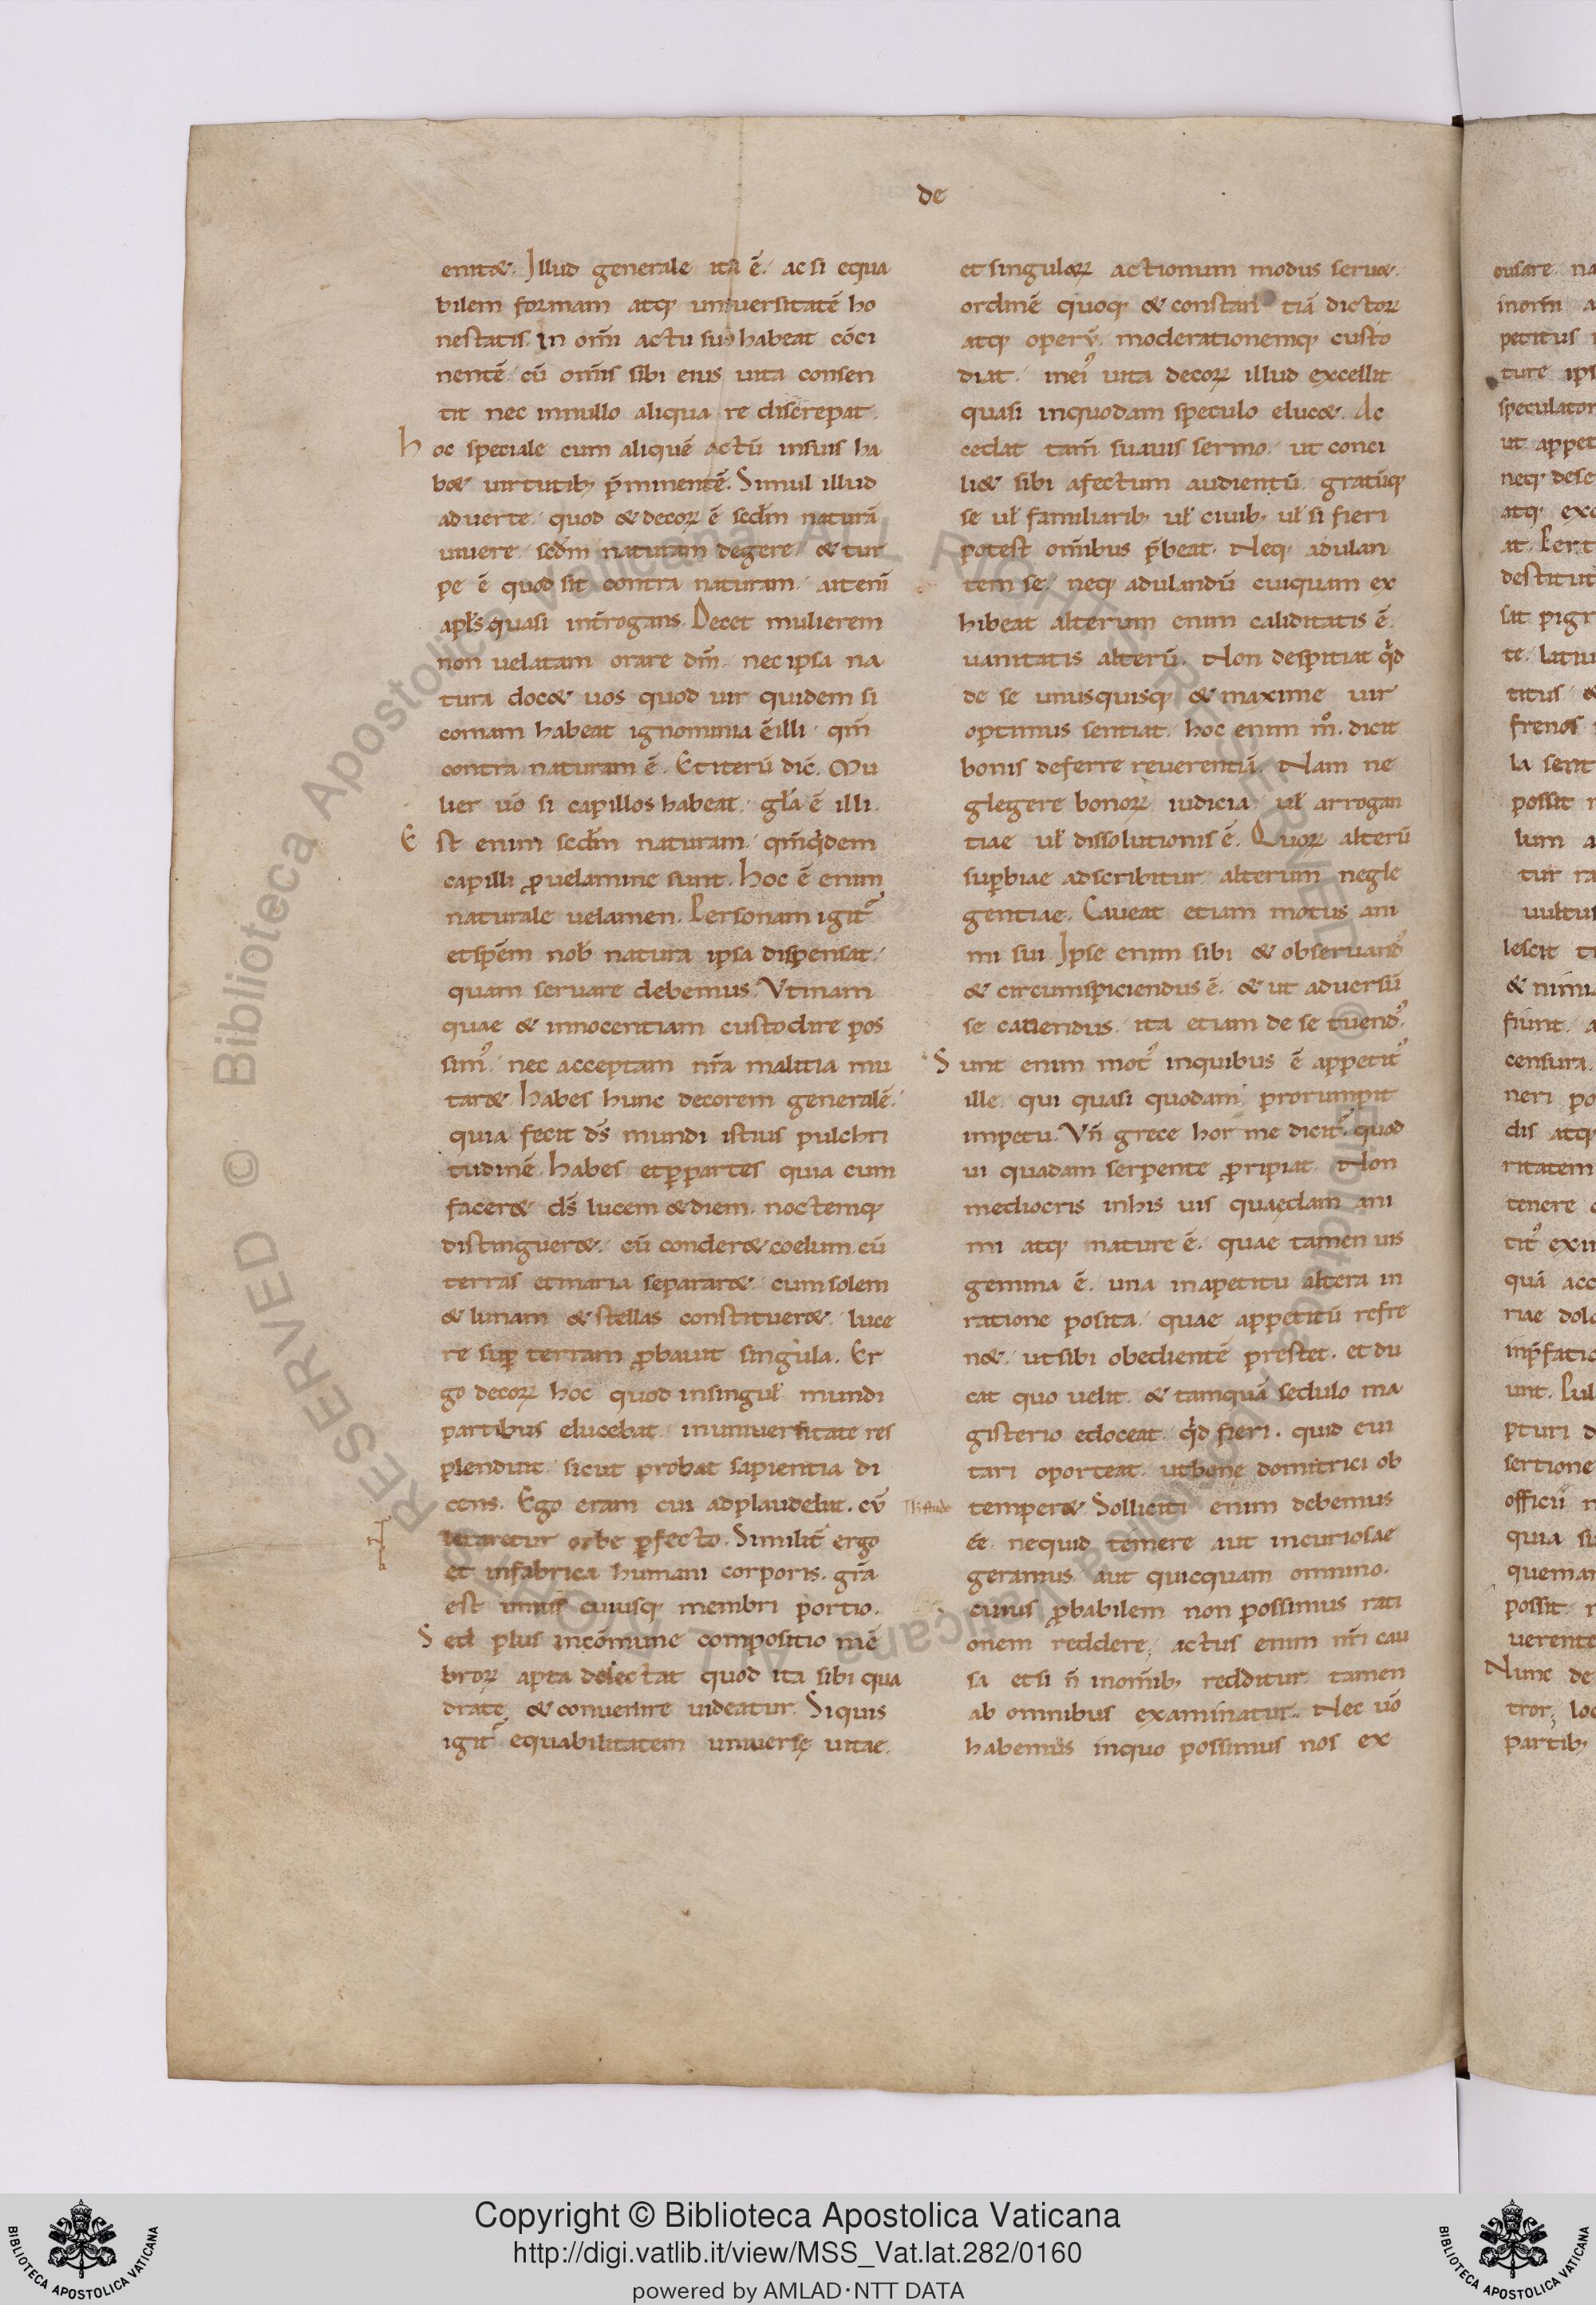 de
enitet. Illud generale ita ē. ac si equa
bilem formam atq; universitatē ho
nestatis. in om̄i actu suo habeat cōci
nentē. cū om̄is sibi eius uita consen
tit nec innullo aliqua re discrepat.
hoc speciale cum aliquē actū insuis ha
bet uirtutib; p̄minentē. Simul illud
aduerte. quod & decorꝝ ē scd̄m naturā
uiuere. scd̄m naturam degere. & tur
pe ē quod sit contra naturam. aiteni
apl̄s quasi int̄rogans. Decet mulierem
non uelatam orare dm̄. nec ipsa na
tura docet uos quod uir quidem si
comam habeat ignominia ē illi. qm̄
contra naturam ē. Et iterū dic̄. Mu
lier ūo si capillos habeat. gl̄a ē illi.
Est enim scd̄m naturam. qm̄qͥdem
capilli ꝓ uelamine sunt. hoc ē enim
naturale uelamen. Personam igit᷑
et spēm nob̄ natura ipsa dispensat.
quam seruare debemus. Utinam
quae & innocentiam custodire pos
simꝰ. nec acceptam nr̄a malitia mu
taret. habes hunc decorem generalē.
quia fecit d̄s mundi istius pulchri
tudinē. habes et ꝑ partes quia cum
faceret d̄s lucem & diem. noctemq;
distingueret. cū conderet coelum. cū
terras et maria separaret. cum solem
& lunam & stellas constitueret. luce
re suꝑ terram ꝓbauit singula. Er
go decorꝝ hoc quod insingul̄ mundi
partibus elucebat. inuniuersitate res
plenduit. sicut probat sapientia di
cens. Ego eram cui adplaudebat. cū
letaretur orbe ꝑfecto. Similit̄ ergo
et infabrica humani corporis. gr̄a
est unius cuiusq; membri portio.
Sed plus incōmune compositio mē
brorꝝ apta delectat quod ita sibi qua
drare & conuenire uideatur. Si quis
igit᷑ equabilitatem uniuersę uitae.
et singularꝝ actionum modus seruet.
ordinē quoq; & constan tiā dictorꝝ
atq; operū. moderationemq; custo
diat. in eiꝰ uita decorꝝ illud excellit
quasi inquodam speculo elucet. Ac
cedat tam̄ suauis sermo. ut conci
liet sibi afectum audientū. gratūq;
se ul̄ familiarib; ul̄ ciuib; ul̄ si fieri
potest om̄ibus p̄beat. Neq; adulan
tem se. neq; adulandū cuiquam ex
hibeat alterum enim caliditatis ē.
uanitatis alterū. Non despitiat qͥd
de se unusquisq; & maxime uir
optimus sentiat. hoc enim m̊. dicit
bonis deferre reuerentiā. Nam ne
glegere bonorꝝ iudicia. ul̄ arrogan
tiae ul̄ dissolutionis ē. Quorꝝ alterū
suꝑbiae adscribitur. alterum negle
gentiae. Caueat etiam motus ani
mi sui. Ipse enim sibi & obseruandꝰ
& circumspiciendus ē. & ut aduersū
se cauendus. ita etiam de se tuendꝰ.
Sunt enim motꝰ inquibus ē appetitꝰ
ille. qui quasi quodam prorumpit
impetu. Un̄ grece hor me dicit᷑. quod
ui quadam serpente ꝓripiat. Non
mediocris inhis uis quaedam ani
mi atq; nature ē. quae tamen uis
gemina ē. una inapetitu altera in
ratione posita. quae appetitū refre
net. ut sibi obedientē prestet. et du
cat quo uelit. & tamquā sedulo ma
gisterio edoceat. qͥd fieri. quid eui
tari oporteat. ut bone domitrici ob
temperet. Solliciti enim debemus
ēe. nequid temere aut incuriosae
geramus. aut quicquam omnino.
cuius ꝓbabilem non possimus rati
onem reddere. actus enim nr̄i cau
sa etsi n̄ inom̄ib; redditur. tamen
ab omnibus examinatur. Nec ūo
habemus inquo possimus nos ex
Copyright © Biblioteca Apostolica Vaticana
http://digi.vatlib.it/view/MSS_Vat.lat.282/0160
powered by AMLAD·NTT DATA